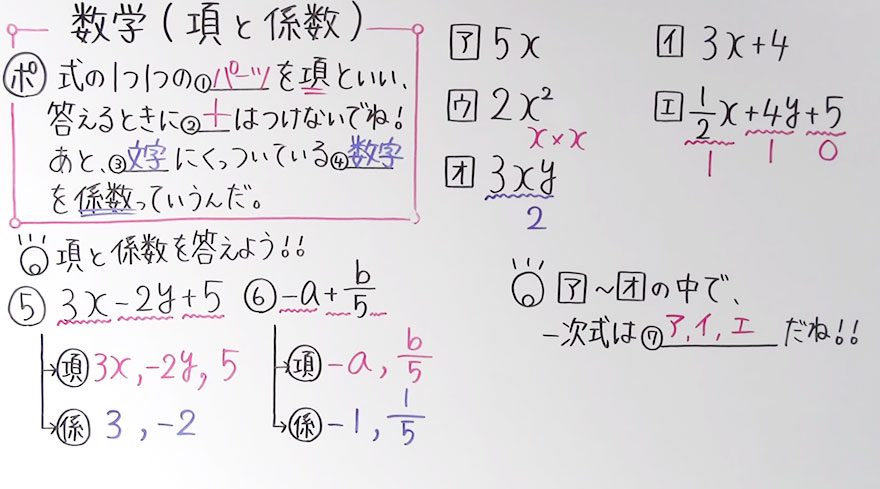 数学(項と係数)
ポ 式の1つ1つの①パーツを項といい、
答えるときに②+はつけないでね!
あと、③文字にくっついている④数字
を係数っていうんだ。
項と係数を答えよう!!
⑤ 3x-2y+5
項 3x, -2y, 5
係 3, -2
⑥ -a+b/5
項 -a, b/5
係 -1, 1/5
ア 5x
イ 3x+4
ウ 2x²
x×x
エ 1/2x+4y+5
1 1 0
オ 3xy
2
ア~オの中で、
一次式は⑦ア,イ,エだね!!